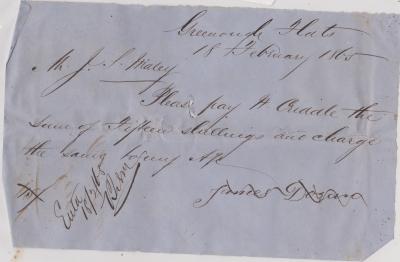 Greenough Flats
18 February 1865
Mr J. S. Maley
Please pay H Criddle the
sum of Fifteen shillings and charge
the same to my A/c
James
15/
Entd
18/2/65